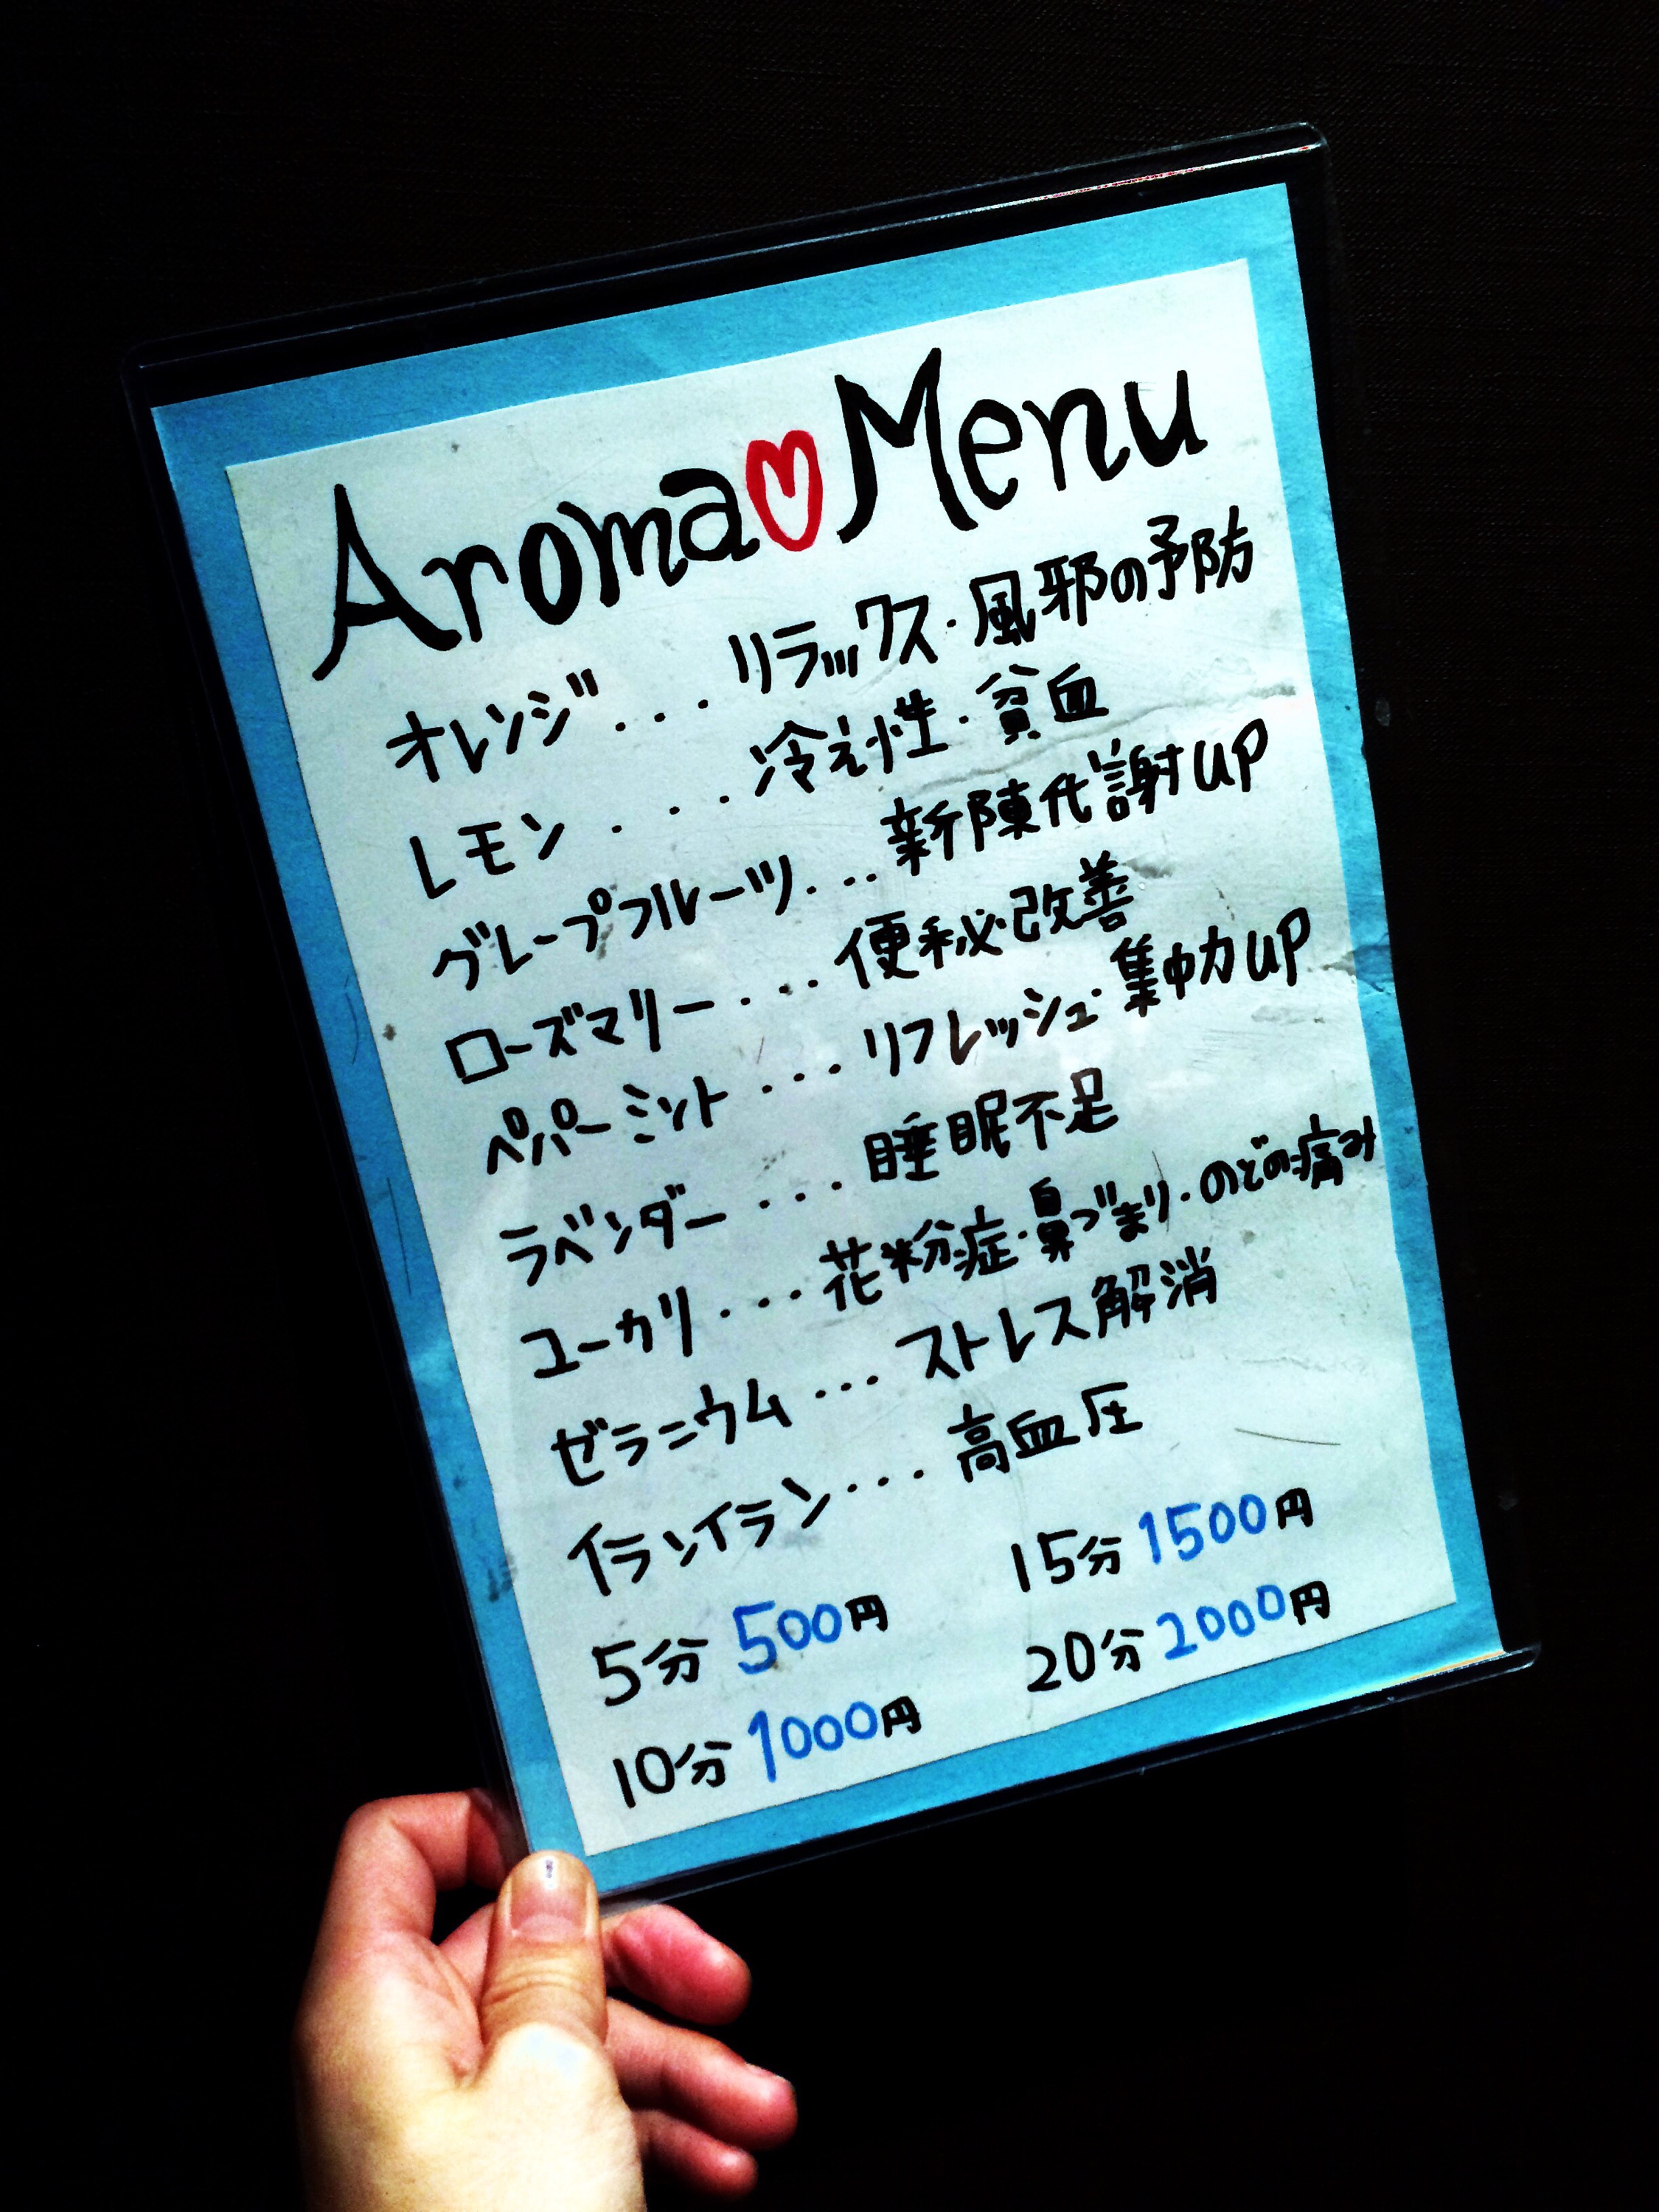 Aroma♡Menu
オレンジ...リラックス・風邪の予防
レモン...冷え性・貧血
グレープフルーツ...新陳代謝UP
ローズマリー...便秘改善
ペパーミント...リフレッシュ・集中力UP
ラベンダー...睡眠不足
ユーカリ...花粉症・鼻づまり・のどの痛み
ゼラニウム...ストレス解消
イランイラン...高血圧
5分 500円 15分 1500円
10分 1000円 20分 2000円